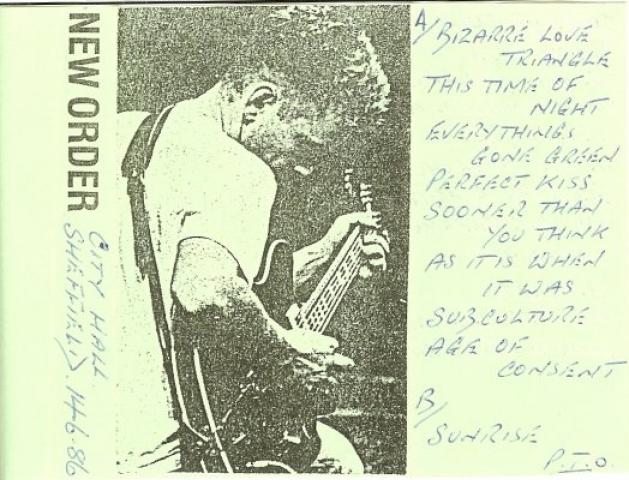 NEW ORDER
CITY HALL
SHEFFIELD 14·6·86
A/ BIZARRE LOVE
TRIANGLE
THIS TIME OF
NIGHT
EVERYTHINGS
GONE GREEN
PERFECT KISS
SOONER THAN
YOU THINK
AS IT IS WHEN
IT WAS
SUBCULTURE
AGE OF
CONSENT
B/
SUNRISE
P.T.O.